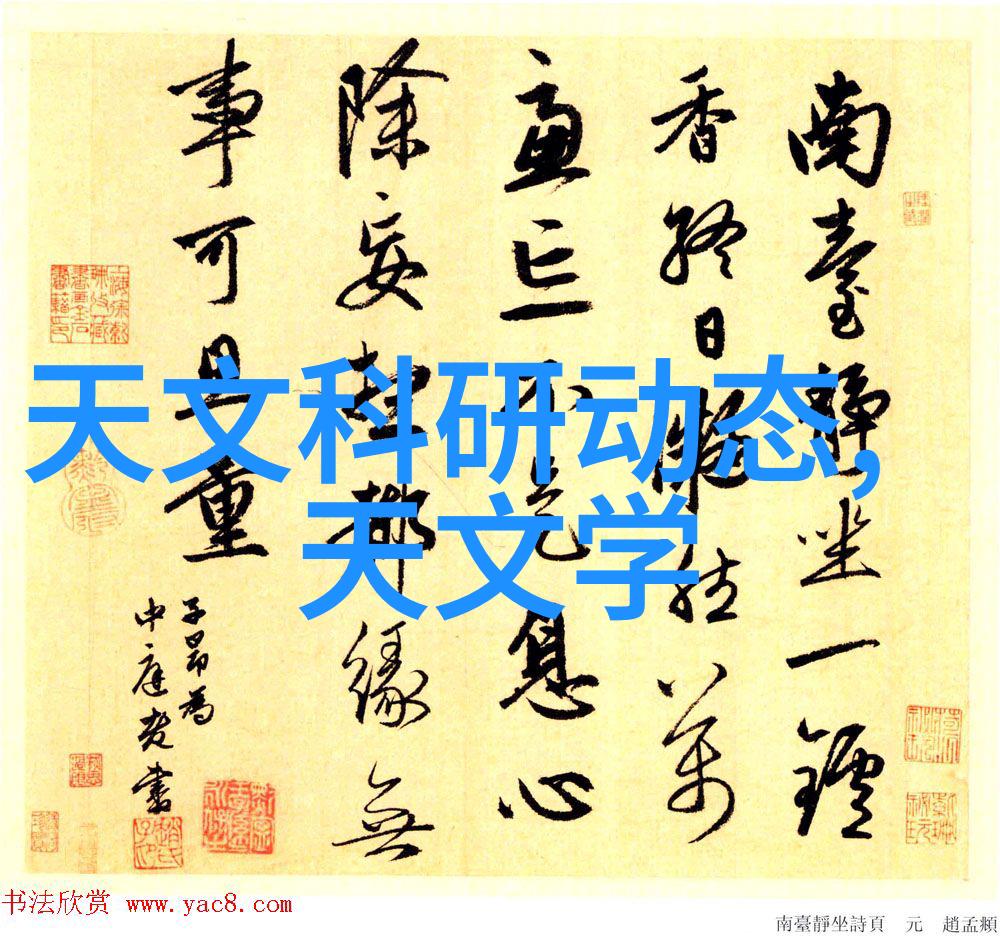 南臺靜坐一鑪
香終日凝然萬
慮亡不是息心
除妄想都緣無
事可思量
子昂為
中庭老書
天文科研动态,
天文学
书法欣赏 www.yac8.com
南臺靜坐詩頁 元 趙孟頫